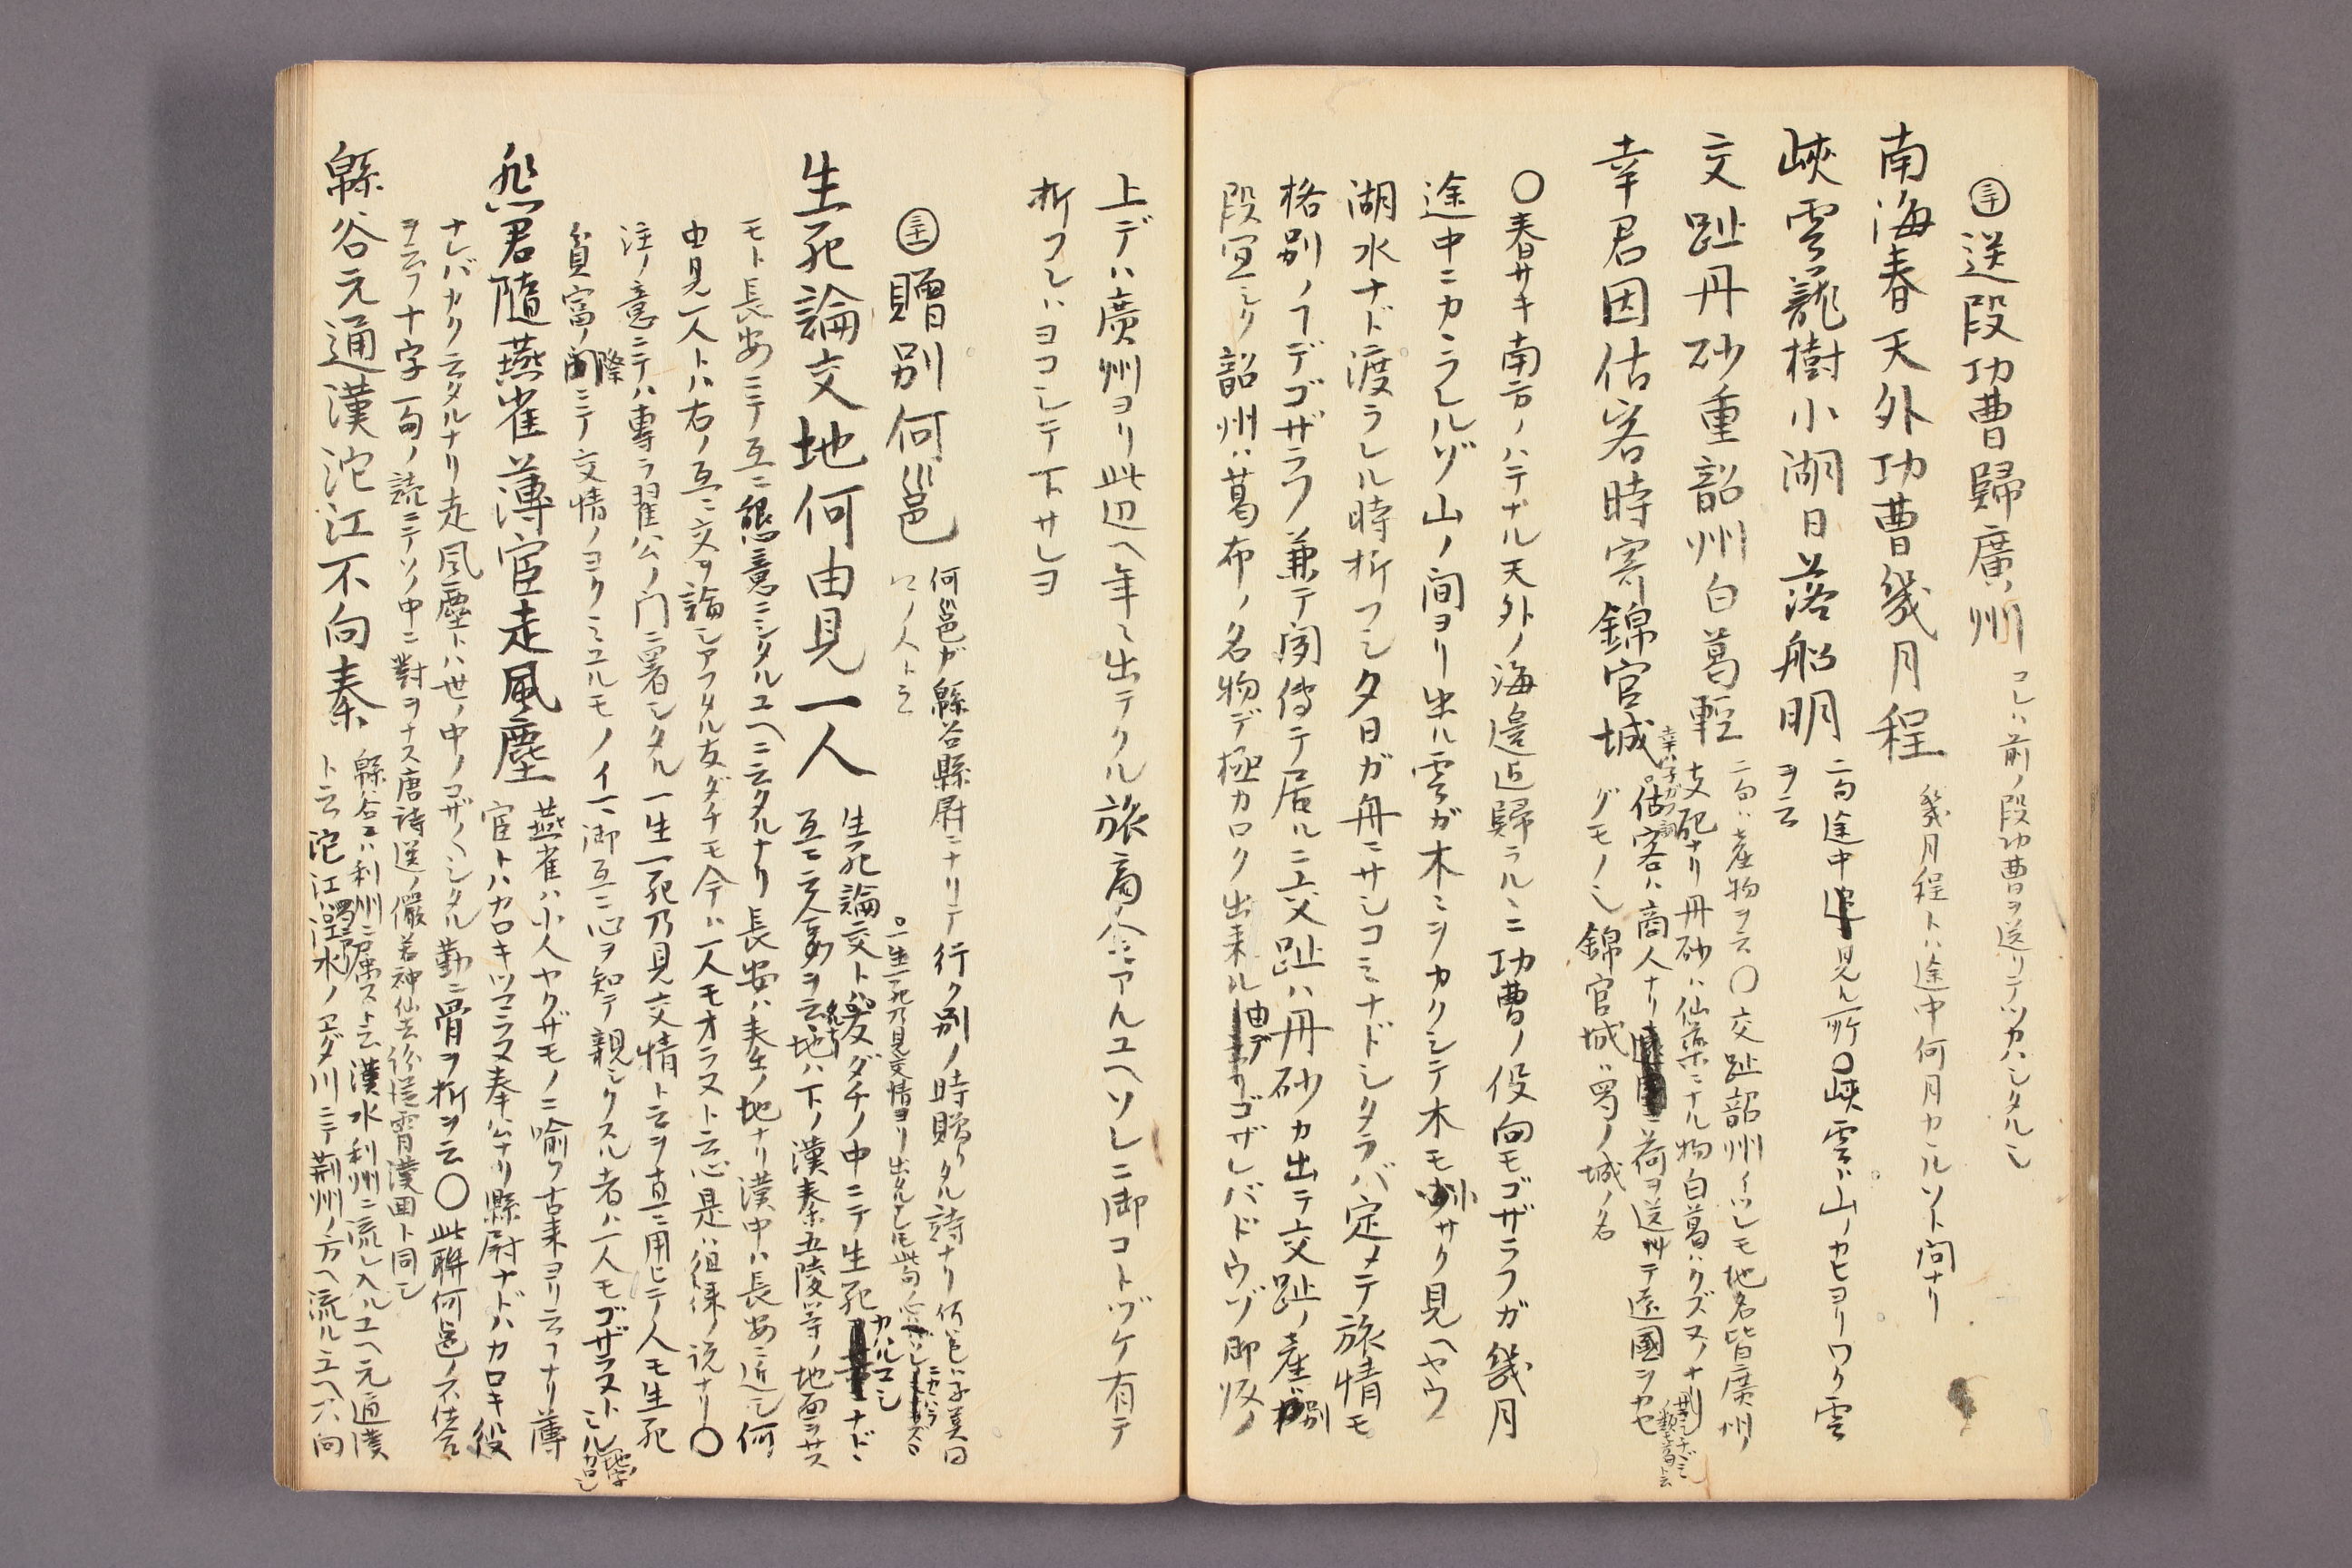 ㊂十 送段功曹歸廣州 コレハ前ノ段功曹ヲ送リテツカハシタルシ
南海春天外功曹幾月程 幾月程トハ途中何月カヽルソト問ナリ
峽雲籠樹小湖日落船明 二句途中 見ル所〇峽雲ハ山ノカヒヨリワク雲
ヲ云
交趾丹砂重韶州白葛輕 二句ハ産物ヲ云〇交趾韶州イツレモ地名皆廣州ノ
支配ナリ丹砂ハ仙薬ニナル物白葛ハクズヌノナリ
幸君因估客時寄錦官城 估客ハ商人ナリ 荷ヲ送リテ遠國ヲカセ
グモノシ錦官城ハ蜀ノ城ノ名
〇春サキ南方ノハテナル天外ノ海邉近歸ラルヽニ功曹ノ役向モゴザラフガ幾月
途中ニカヽラレルゾ山ノ間ヨリ出ル雲ガ木ミヲカクシテ木モ小サク見ヘヤウ
湖水ナド渡ラレル時折フシ夕日ガ舟ニサシコミナドシタラバ定メテ旅情モ
格別ノ丁デゴザラフ兼テ聞傳テ居ルニ交趾ハ丹砂カ出テ交趾ノ産ガ別
段宜シク韶州ハ葛布ノ名物デ極カロク出来ル由デゴザレバドウゾ御皈ノ
上デハ廣州ヨリ此辺ヘ年〻出テクル旅商人ニアルユヘソレニ御コトヅケ有テ
折フシハヨコシテ下サレヨ
㊂十一 贈別何邕 何邕ガ綿谷縣尉ニナリテ行ク別ノ時贈リタル詩ナリ何邕ハ子美同
口ノ人ト云
生死論交地何由見一人 生死論交トハ友ダチノ中ニテ生死カハルコシナド
互ニ云タルヲ云地ハ下ノ漢秦五陵等ノ地面ヲサス
一生一死乃見交情ヨリ出タルレ𪜈此句ノ
モト長安ニテ互ニ懇意ニシタルユヘニ云タルナリ長安ハ秦ノ地ナリ漢中ハ長安ニ近シ何
由見一人トハ右ノ互ニ交ヲ論シアフタル友ダチモ今ハ一人モオラヌト云心是ハ徂徠ノ説ナリ〇
注ノ意ニテハ專ラ翟公ノ門ニ署シタル一生一死乃見交情ト云ヲ直ニ用ヒテ人モ生死
貧富ノ際ニテ交情ノヨクミユルモノイマ御互ニ心ヲ知テ親シクスル者ハ一人モゴザラヌト
悲君隨燕雀薄宦走風塵 燕雀ハ小人ヤクザモノニ喩フ古来ヨリ云フナリ薄
宦トハカロキツマラヌ奉公ナリ縣尉ナドハカロキ役
ナレバカク云タルナリ走風塵トハ世ノ中ノゴザ〱シタル勤ニ骨ヲ折ヲ云〇此聯何邕ノ不仕合
ヲ云フ十字一句ノ読ニテソノ中ニ對ヲナス唐詩選ノ儼若神仙去紛從霄漢囬ト同シ
綿谷元通漢沱江不向秦 綿谷ハ利州ニ屬スト云漢水利州ニ流レ入ルユヘ元通漢
ト云沱江ハ 水ノエダ川ニテ荊州ノ方ヘ流ルユヘ不向